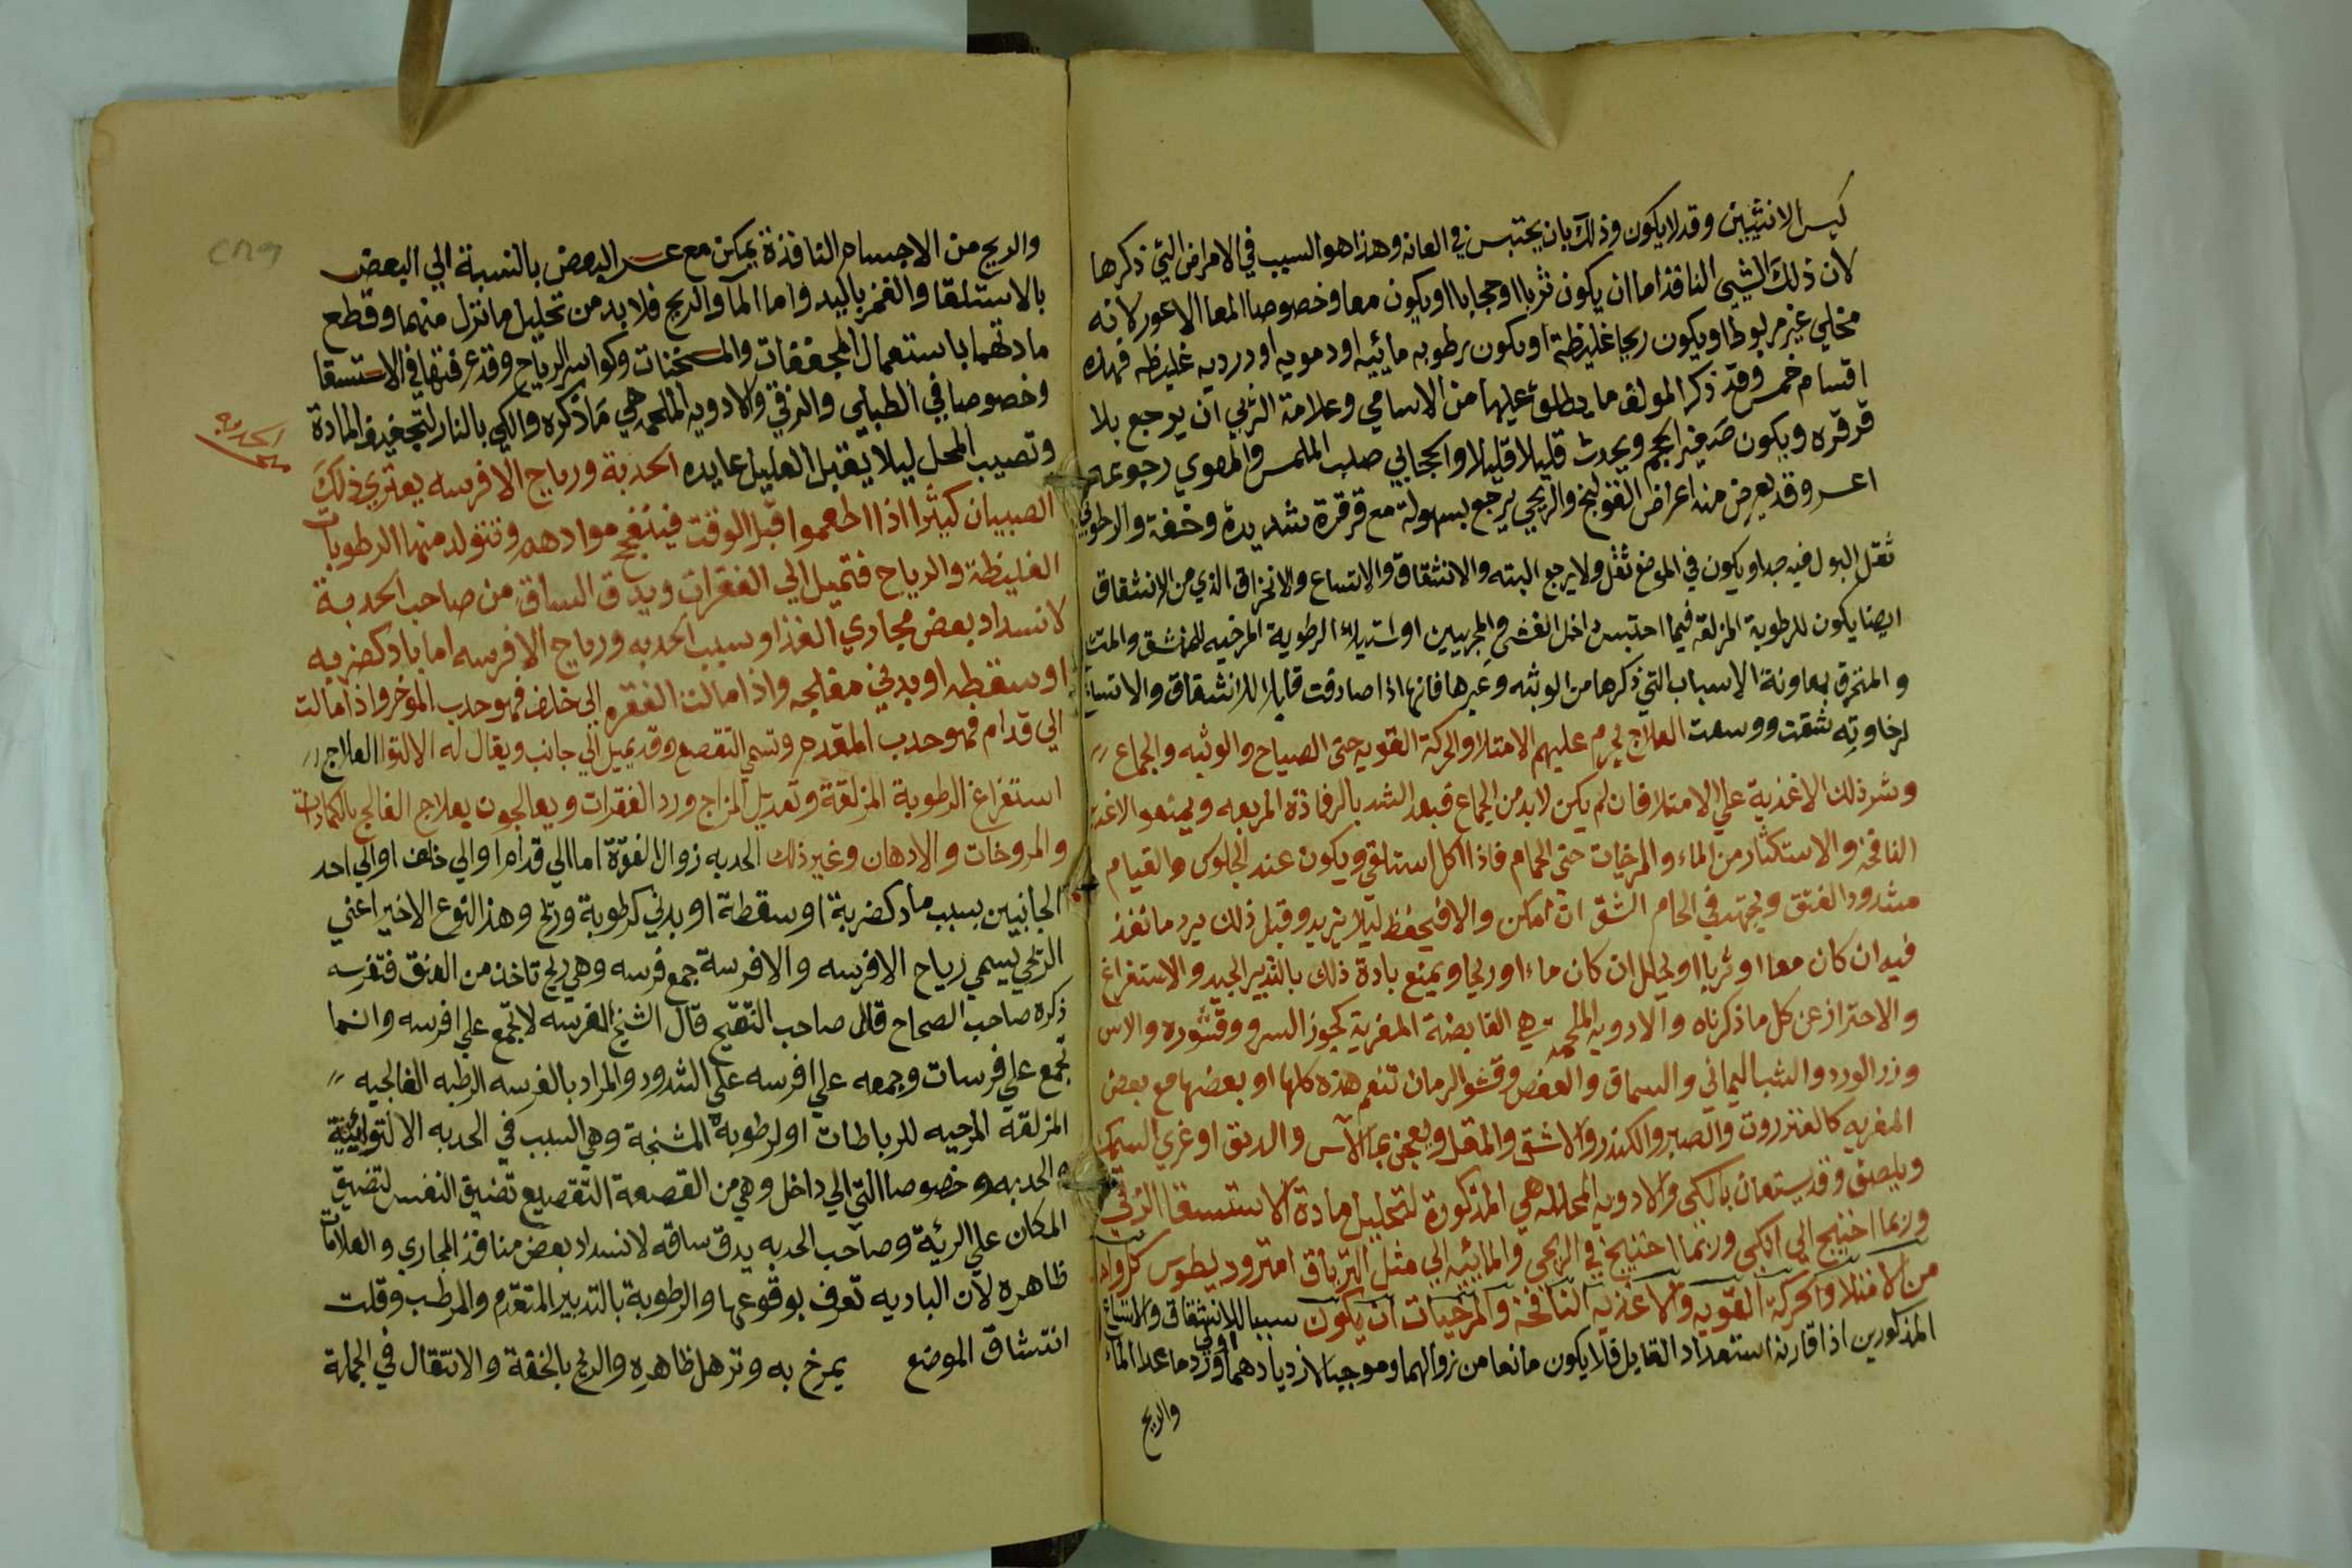 كيس الانثيين وقد لا يكون وذلك بان يحتبس في العانه وهذا هو السبب في الامراض التي ذكرها
لان ذلك الشيى النافذ اما ان يكون ثربا او حجابا او يكون معا وخصوصا المعا الاعور لانه
مخلي غير مربوط او يكون ريحا غليظة او يكون رطوبه مائيه او دمويه او درديه غليظه فهذه
اقسام خمس وقد ذكر المولف ما يطلق عليها من الاسامي وعلامة الثربي ان يرجع بلا
قرقره ويكون صغير الحجم ويحدث قليلا قليلا والحجابي صلب الملمس والمعوي رجوعه
اعسر وقد يعرض منه اعراض القولنج والريحي يرجع بسهولة مع قرقرة شديدة وخفة والرطوبي
ثقل البول فيه جدا ويكون في الموضع ثقل ولا يرجع البته والانشقاق والاتساع والانخراق الذي من الانشقاق
ايضا يكون للرطوبة المزلقه فيما احتبس داخل الغشى والمجريين او استيلاء الرطوبة المرخيه للمنشق والمتسع
والمنخرق بمعاونة الاسباب التي ذكرها من الوثبه وغيرها فانها اذا صادفت قابلا للانشقاق والاتساع
لرخاوته شقت ووسعت العلاج يحرم عليهم الامتلا والحركة القويه حتى الصياح والوثبه والجماع
وشر ذلك الاغذية علي الامتلا فان لم يكن لابد من الجماع فبعد الشد بالرفاذة المربعه ويمنعوا الاغذية
النافخه والاستكثار من الماء والمرخيات حتى الحمام فاذا اكل استلقي ويكون عند الجلوس والقيام
مشدود الفتق ويجتهد في الحام الشق ان امكن والا فيحفظ ليلا يزيد وقبل ذلك يرد ما نفذ
فيه ان كان معا او ثربا او يحلل ان كان ماء او ريحا ويمنع بادة ذلك بالتدبير الجيد والاستفراغ
والاحتراز عن كل ما ذكرناه والادويه الملحمه هي القابضة المغرية كجوز السرو وقشوره والاس
وزر الورد والشب اليماني والسماق والعفص وقشور الرمان تنعم هذه كلها او بعضها مع بعض
المغريه كالعنزروت والصبر والكندر والاشق والمقل ويعجن بماء الآس والدبق او غري السمك
ويلصق وقد يستعان بالكي والادويه المحللة هي المذكورة لتحليل مادة الاستسقا الزقي
وربما احتيج الي الكي وربما احتيج في الريحي والمائيه الي مثل الترياق امثروديطوس كل واحد
من الامتلا والحركة القويه والاغذيه النافخه والمرخيات ان يكون سببا للانشقاق والاتساع
المذكورين اذا قارنه استعداد القابل فلا يكون مانعا من زوالهما وموجبا لازديادهما اولي ورد ما عدا الماء
والريح
والريح من الاجسام النافذة يمكن مع عسر البعض بالنسبة الي البعض
بالاستلقا والغمز باليد واما الما والريح فلا بد من تحليل ما نزل منهما وقطع
مادتهما باستعمال المجففات والمسخنات وكواسر الرياح وقد عرفتها في الاستسقا
وخصوصا في الطبلي والزقي والادويه الملحمه هي ما ذكره والكي بالنار لتجفيف المادة
وتصليب المحل ليلا يقبل العليل عايده الحدبة ورياح الافرسه يعتري ذلك
الحدبه
الصبيان كثيرا اذا اطعموا قبل الوقت فينفج موادهم وتتولد منها الرطوبات
الغليظة والرياح فتميل الي الفقرات ويدق الساق من صاحب الحدبة
لانسداد بعض مجاري الغذا وسبب الحدبه ورياح الافرسه اما باد كضربه
او سقطه او بدني مفلجه واذا مالت الفقره الي خلف فهو حدب الموخر واذا مالت
الي قدام فهو حدب المقدم وتسمي التقصع وقد يميل الي جانب ويقال له الالتوا العلاج
استفراغ الرطوبة المزلقة وتعديل المزاج ورد الفقرات ويعالجون بعلاج الفالج بالكمادات
والمروخات والادهان وغير ذلك الحدبه زوال الفقرة اما الي قدام او الي خلف او الي احد
الجانبين بسبب باد كضربة او سقطة او بدني كرطوبة وريح وهذا النوع الاخير اعني
الريحي يسمي رياح الافرسه والافرسة جمع فرسه وهي ريح تاخذ من العنق فتفرسه
ذكره صاحب الصحاح قال صاحب التنقيح قال الشيخ الفرسه لا تجمع علي افرسه وانما
تجمع علي فرسات وجمعه علي افرسه علي الشدود والمراد بالفرسه الرطبه الفالجيه
المزلقه المرخيه للرباطات او لرطوبة المشنجة وهي السبب في الحدبه الالتوائية
والحدبه وخصوصا التي الي داخل وهي من القصعة التقصيع تضيق النفس لتضيق
المكان علي الرية وصاحب الحدبه يدق ساقه لانسداد بعض منافذ المجاري والعلامات
ظاهره لان الباديه تعرف بوقوعها والرطوبة بالتدبير المتقدم والمرطب وقلت
انتشاق الموضع يمرخ به وترهل ظاهره والريح بالخفة والانتقال في الجملة